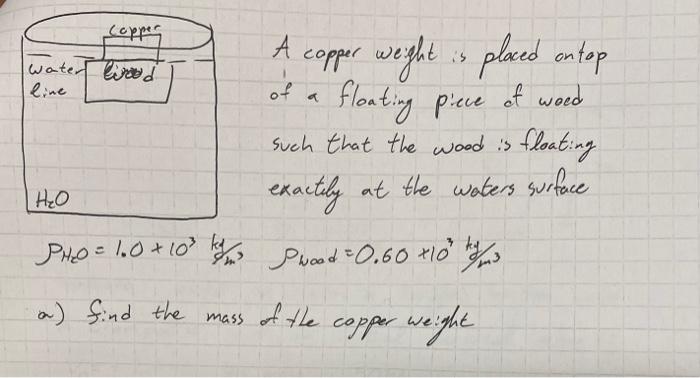 copper
water wood
line
H₂O
A copper weight is placed on top
of a floating piece of wood
such that the wood is floating
exactily at the waters surface
ρH₂O = 1.0 * 10³ kg/m³ ρwood = 0.60 * 10³ kg/m³
a) find the mass of the copper weight